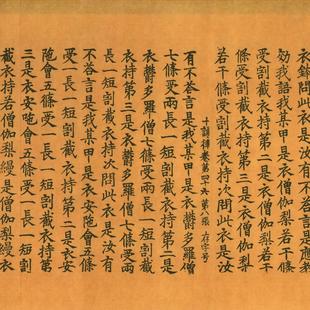 衣鉢問此衣是汝有不答言是應教
効我語我某甲是衣僧伽梨若干條
受割截衣持第二是衣僧伽梨若干
條受割截衣持第三是衣僧伽梨
若干條受割截衣持次問此衣是汝
十誦律卷第四十六 第八張 存字号
有不答言是我某甲是衣欝多羅僧
七條受兩長一短割截衣持第二是
衣欝多羅僧七條受兩長一短割截
衣持第三是衣欝多羅僧七條受兩
長一短割截衣持次問此衣是汝有
不答言是我某甲是衣安陁會五條
受一長一短割截衣持第二是衣安
陁會五條受一長一短割截衣持第
三是衣安陁會五條受一長一短割
截衣持若僧伽梨縵是僧伽梨縵衣